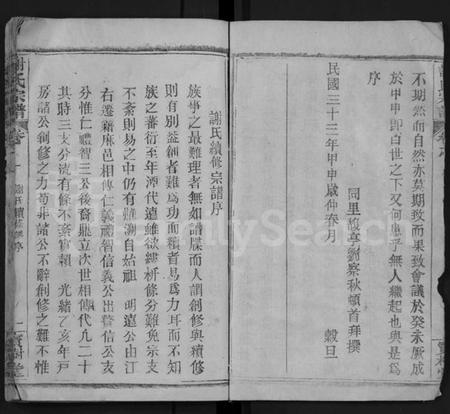 不期然而自然亦莫期致而果致會議於癸未厥成
於甲申即百世之下又何患乎無人繼起也與是爲
序
民國三十三年甲申歲仲春月
穀旦
同里馥亭劉察秋頓首拜撰
謝氏續修宗譜序
族事之最難理者無如譜牒而人謂創修與續修
則有別益創者難爲功而續者易爲力耳而不知
族之蕃衍至年湮代遠雖欲縷析條分難免宗支
不紊則易之中仍有難測自始祖 明遠公由江
右遷籍麻邑相傳仁義禮智信義公出贅信公支
分惟仁禮智三公後裔鼎立次世相傳代凡二十
其時三支分流有條不紊實賴 光緒乙亥年戸
房諸公創修之力茍非諸公不辭創修之難不惟
謝氏宗譜
卷
謝氏續修序
二
寶樹堂
FamilySearch